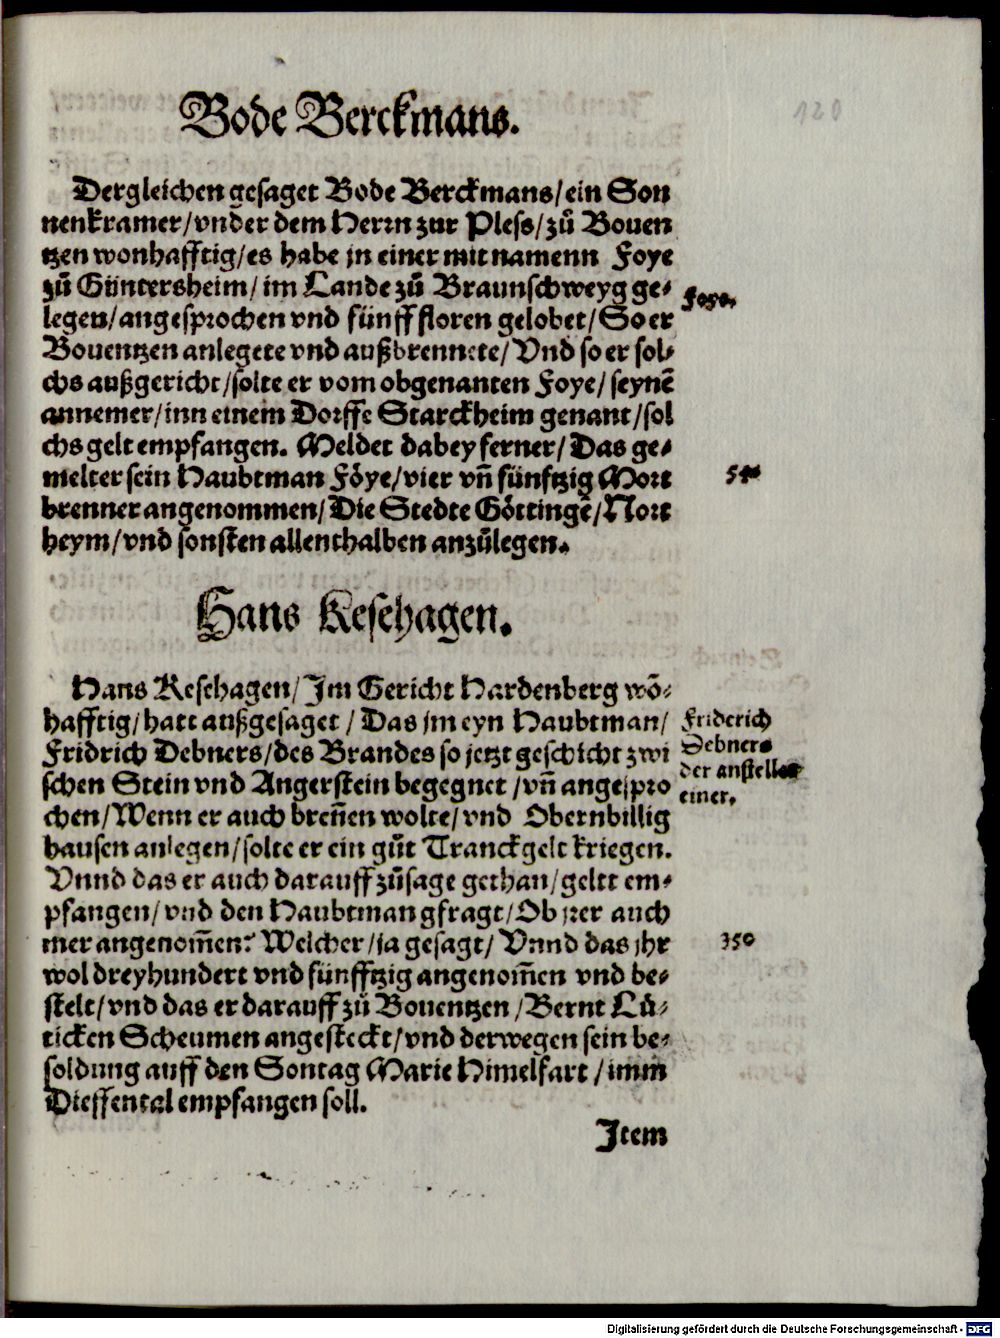 120
Bode Berckmans.
Dergleichen gesaget Bode Berckmans/ein Son
nenkramer/vnder dem Herrn zur Pless/zů Bouen
tzen wonhafftig/es habe jn einer mit namenn Foye
zů Güntersheim/im Lande zů Braunschweyg ge⸗
legen/angesprochen vnd fünff floren gelobet/So er
Bouentzen anlegete vnd außbrennete/Vnd so er sol⸗
chs außgericht/solte er vom obgenanten Foye/seynē
annemer/inn einem Dorffe Starckheim genant/sol
chs gelt empfangen. Meldet dabey ferner/Das ge⸗
melter sein Haubtman Föye/vier vn̄ fünftzig Mort
brenner angenommen/Die Stedte Göttingē/Nort
heym/vnd sonsten allenthalben anzůlegen.
Foye.
54
Hans Kesehagen.
Hans Kesehagen/Im Gericht Hardenberg wō⸗
hafftig/hatt außgesaget/Das jm eyn Haubtman/
Fridrich Debners/des Brandes so jetzt geschicht zwi
schen Stein vnd Angerstein begegnet/vn̄ angespro
chen/Wenn er auch breñen wolte/vnd Obernbillig
hausen anlegen/solte er ein gůt Tranckgelt kriegen.
Vnnd das er auch darauff zůsage gethan/geltt em⸗
pfangen/vnd den Haubtman gfragt/Ob jrer auch
mer angenom̄en? Welcher/ja gesagt/Vnnd das jhr
wol dreyhundert vnd fünfftzig angenom̄en vnd be⸗
stelt/vnd das er darauff zů Bouentzen/Bernt Lü⸗
ticken Scheumen angesteckt/vnd derwegen sein be⸗
soldung auff den Sontag Marie Himelfart/imm
Dieffental empfangen soll.
Friderich
Debners
der ansteller
einer.
350
Item
Digitalisierung gefördert durch die Deutsche Forschungsgemeinschaft - DFG